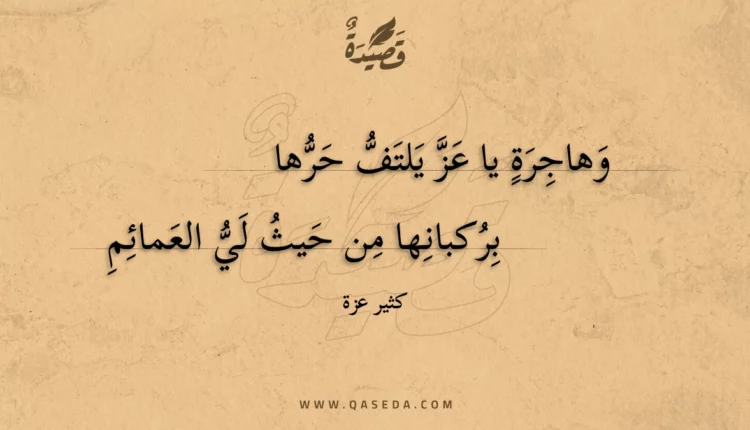 قَصِيْدَةٌ
وَهاجِرَةٍ يا عَزَّ يَلتَفُّ حَرُّها
بِرُكبانِها مِن حَيثُ لَيُّ العَمائِمِ
كثير عزة
WWW.QASEDA.COM